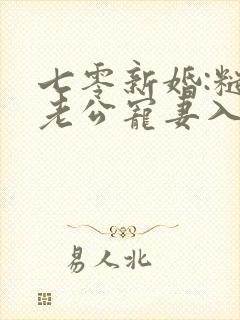 七零新婚:糙
老公宠妻入
易人北